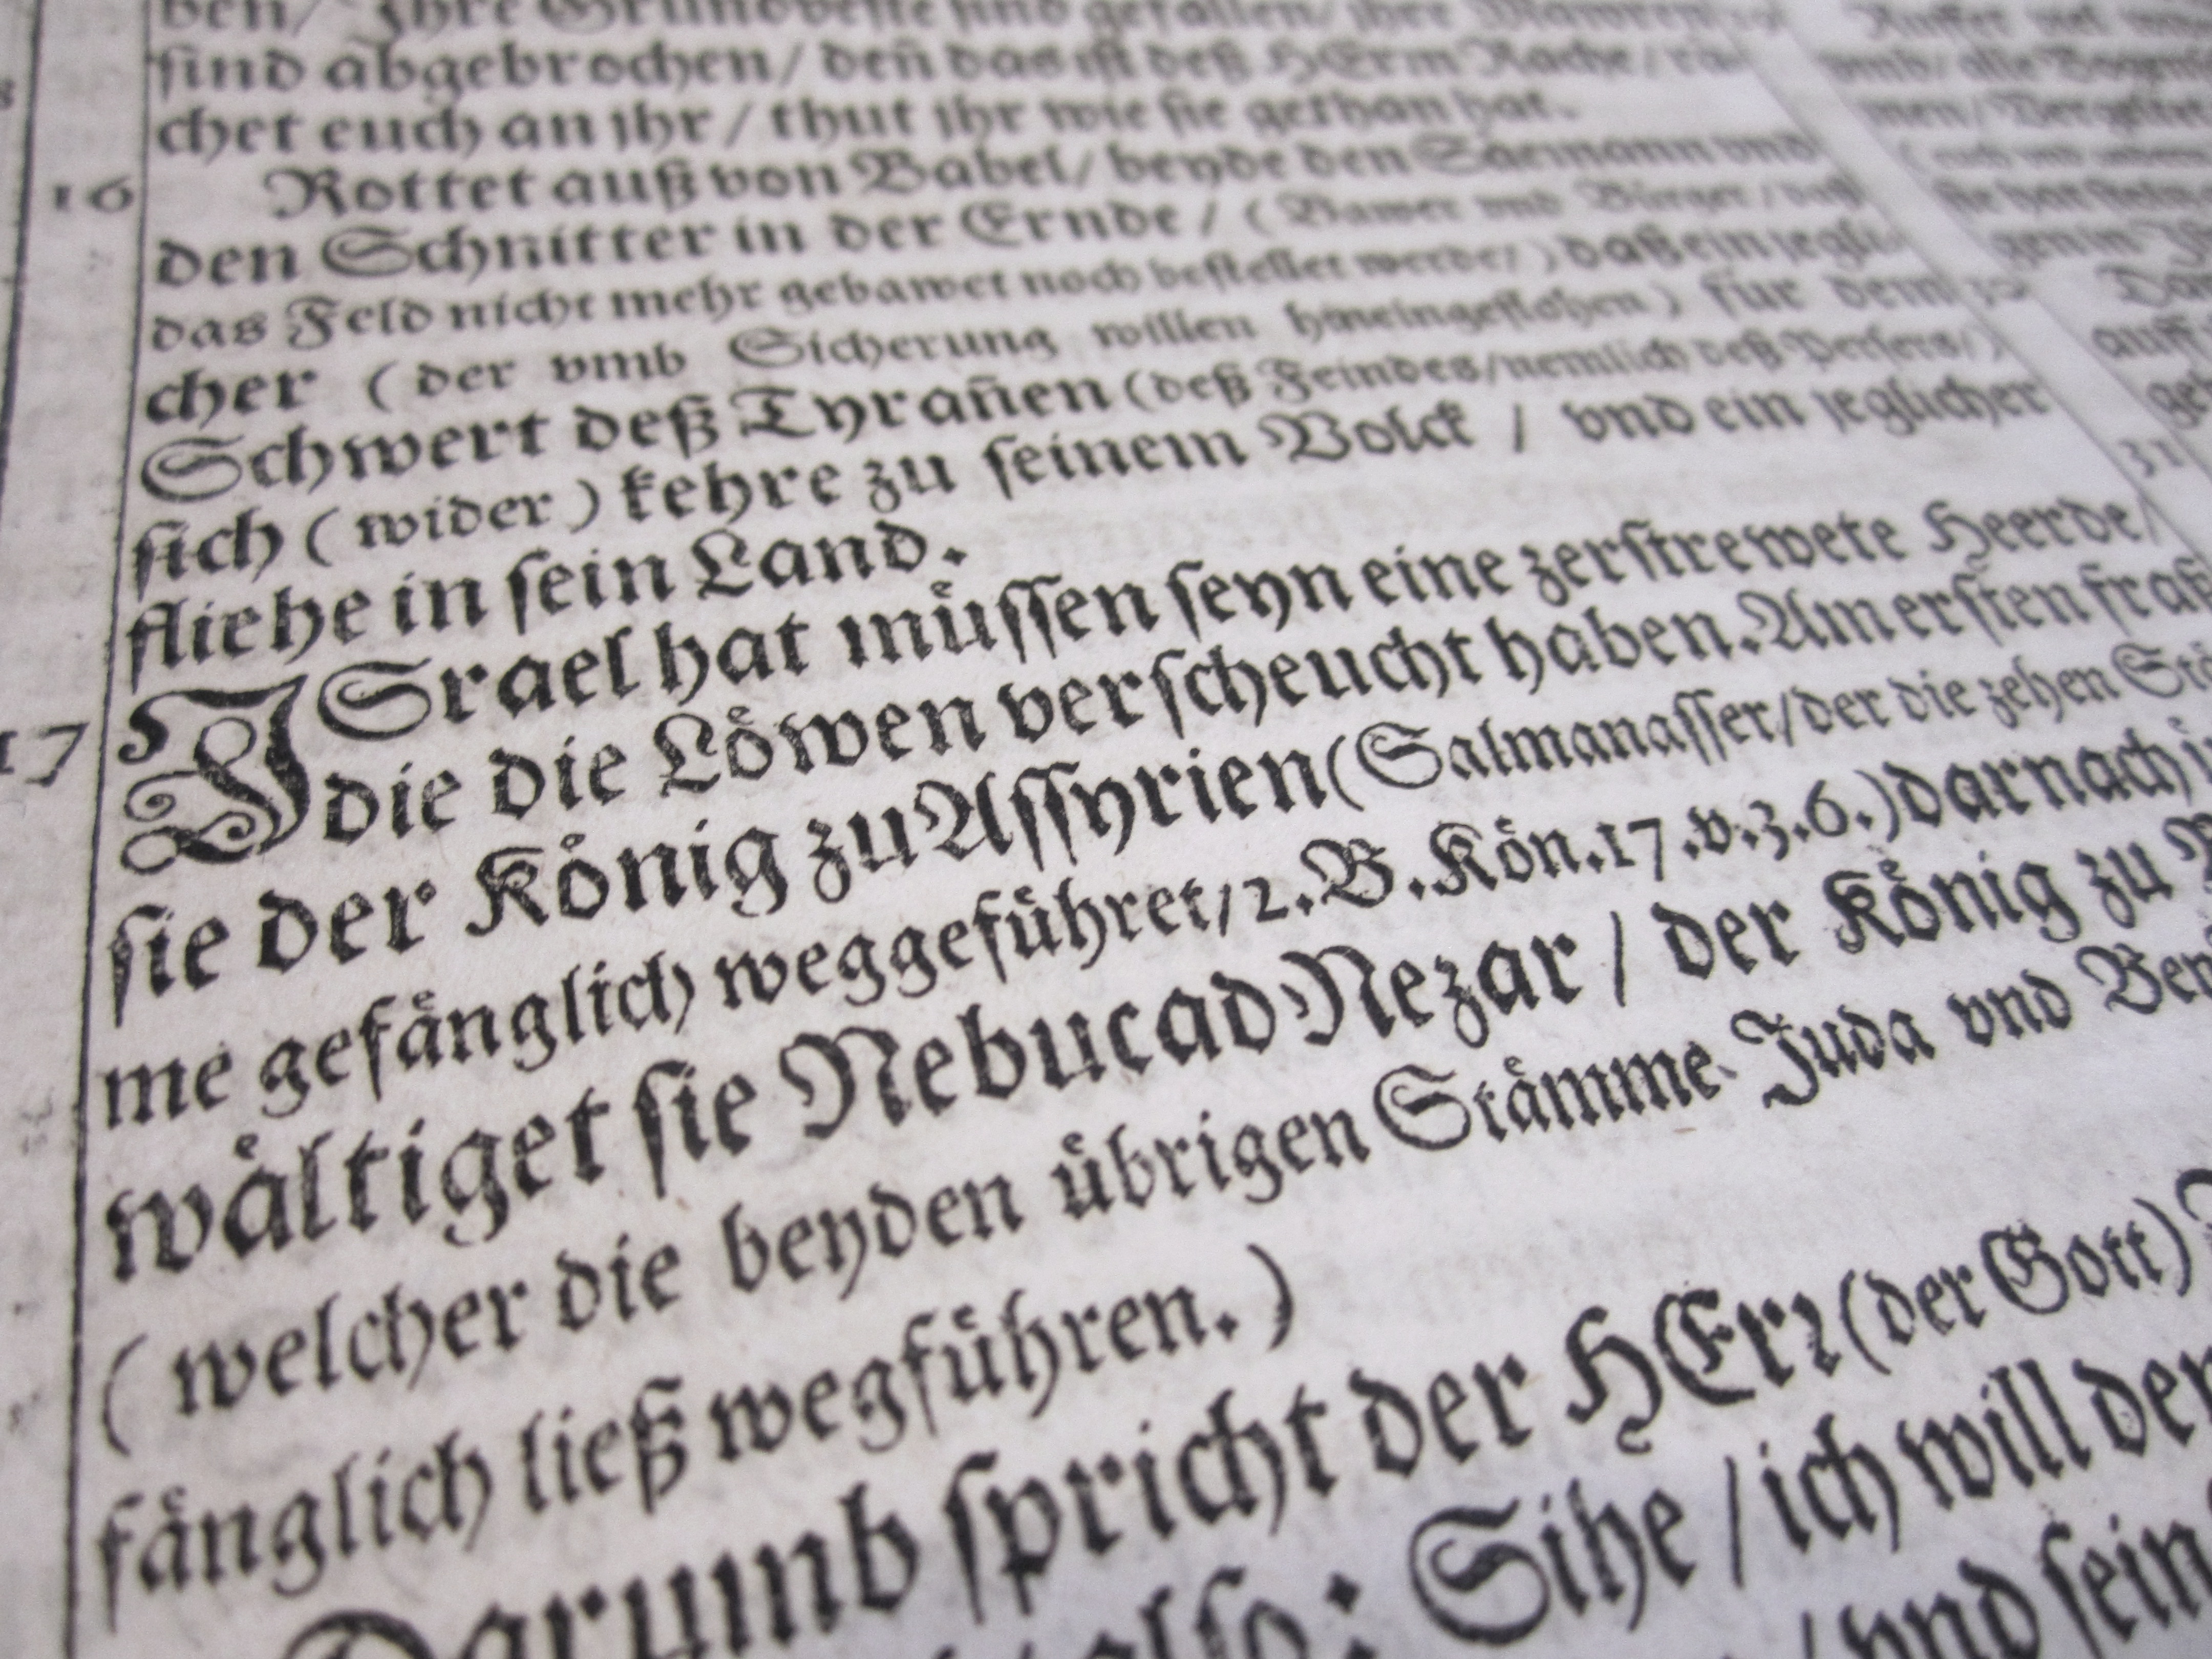 ben/ Ihre Grundveste sind gefallen/ ihre Mawren
sind abgebrochen/ deñ das ist deß HErrn Rache/
chet euch an ihr / thut ihr wie sie gethan hat.
16 Rottet auß von Babel/ beyde den Säemann vnd
den Schnitter in der Ernde / ( Bawer vnd Bürger / daß
das Feld nicht mehr gebawet noch bestellet werde/ ) daß ein jegli-
cher ( der vmb Sicherung willen hineingeflohen ) für dem
Schwert deß Tyrañen ( deß Feindes/ nemlich deß Persers/ )
sich ( wider ) kehre zu seinem Volck / vnd ein jeglicher
fliehe in sein Land.
17 ISrael hat müssen seyn eine zerstrewete Heerde/
die die Löwen verscheucht haben. Am ersten fraß
sie der König zu Assyrien ( Salmanasser/ der die zehen Stä
me gefänglich weggeführet/ 2. B. Kön. 17. v. 3. 6. ) darnach
wältiget sie NebucadNezar / der König zu
( welcher die beyden übrigen Stämme Juda vnd Ben
fänglich ließ wegführen. )
Darumb spricht der HErr ( der Gott )
also: Sihe / ich will den
/ vnd sein